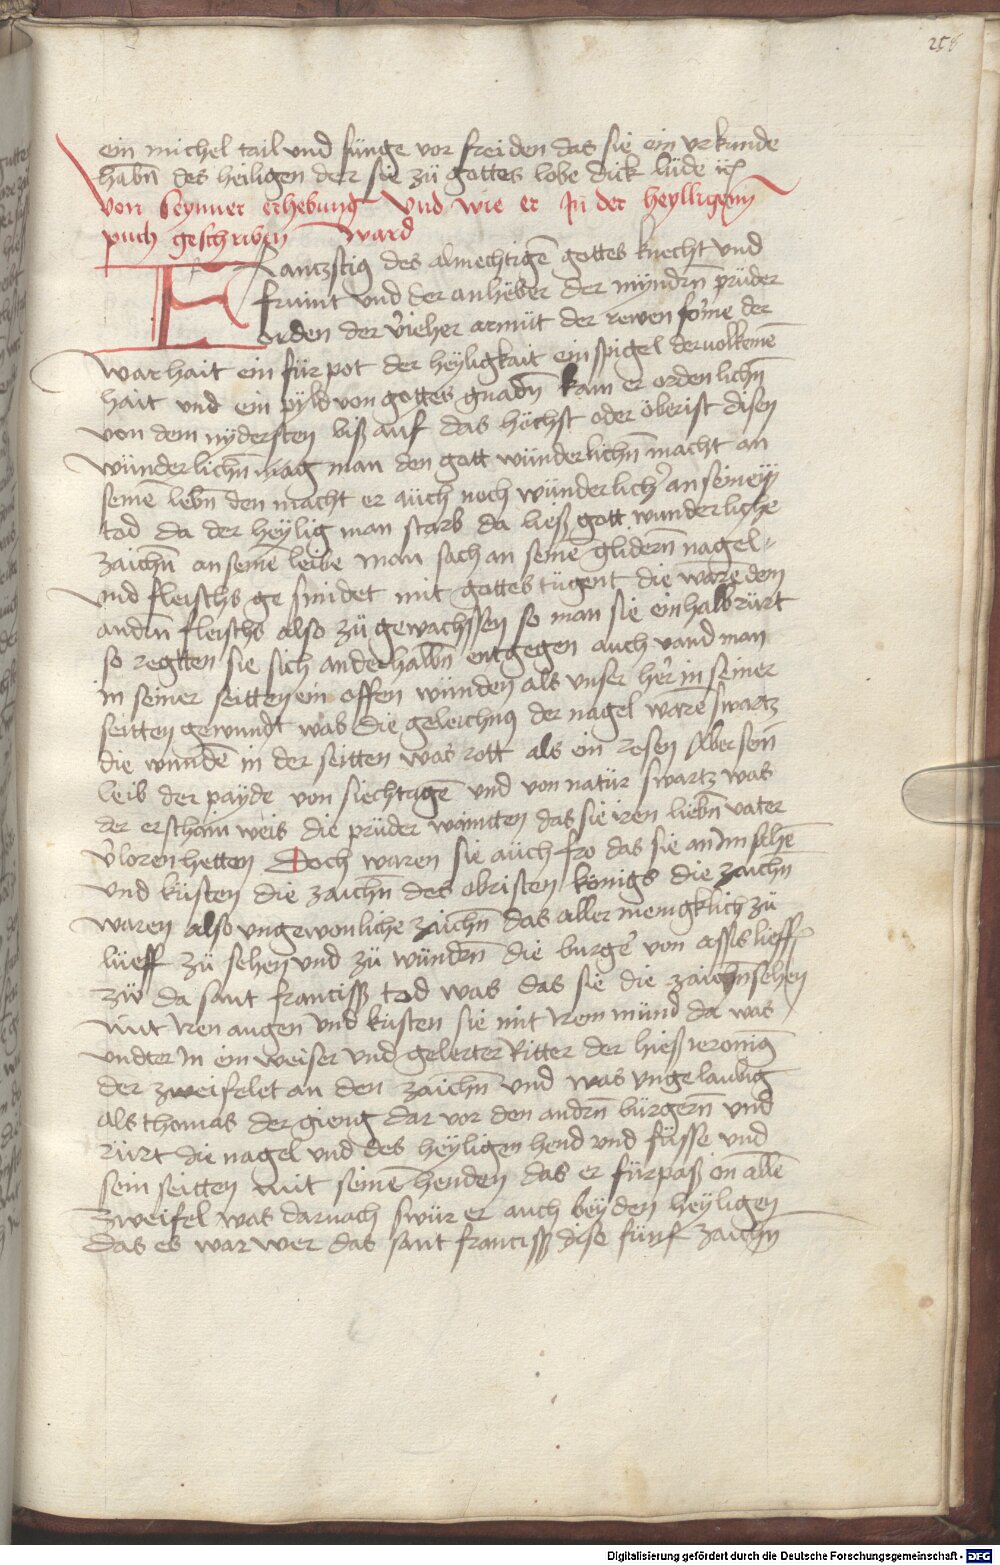 258
ein michel tail und sünge vor freiden das sie ein vrkunde
habn̄ des heiligen der sie zü gottes lobe dick lüde
von seynner erhebung Vnd wie er In der heylligenn
puch geschriben ward
Franczsciꝰ des almechtigē gottes knecht vnd
frunt vnd der anheber der myndrn̄ prüder
orden der v̓ieher armüt der rewen forme der
warhait ein fürpot der heyligkait ein spigel der volkomē
hait vnd ein pyld von gottes gnadn̄ kam er ordenlichn̄
von dem nydersten biß auf das höchst oder öberist disen
wünderlichn̄ mag man den gott wünderlichn̄ macht an
seinē lebn̄ den macht er auch noch wünderlich̓ an seineÿ
tod da der heylig man starb da ließ gott wunderliche
zaichn̄ an seinē leibe man sach an seinē glidern̄ nagel
vnd fleischs gesmidet mit gottes tügent die warē dem
andrn̄ fleischs also zü gewachssen so man sie einhalb rürt
so regtten sie sich anderhalbn̄ entgegen auch vand man
in seiner seitten ein offen wünden als vnser her̓ in seiner
seitten gewundt was die geleichnꝰ der nagel warē swartz
die wundē in der seitten was rott als ein rosen Aber sein
leib der payde von siechtagē vnd von natür swartz was
der erschain weis die prüder wainten das sie iren liebn̄ vater
v̓loren hetten Doch waren sie aüch fro das sie an im sehē
vnd küsten die zaichn̄ des obristen königs die zaichn̄
waren also vngewonliche zaichn̄ das aller menigklich zü
lüeff zü sehen vnd zü wündrn̄ die burge̓ von assis lieffn̄
zw̄ da sant francisß tod was das sie die zaichn̄ sehen
mit iren augen vnd küsten sie mit irem münd da was
vndter in ein weiser vnd gelerter Ritter der hieß ieronimꝰ
der zweifelet an den zaichn̄ vnd was vngelaubig
als thomas der gieng dar vor den andrn̄ bürgern̄ vnd
rürt die nagel vnd des heyligen hend vnd füsse vnd
sein seitten mit seinē henden das er fürpaß on allē
zweifel was darnach swür er auch bey den heyligen
das es war wer das sant francisß dise fünf zaichn̄
Digitalisierung gefördert durch die Deutsche Forschungsgemeinschaft - DFG